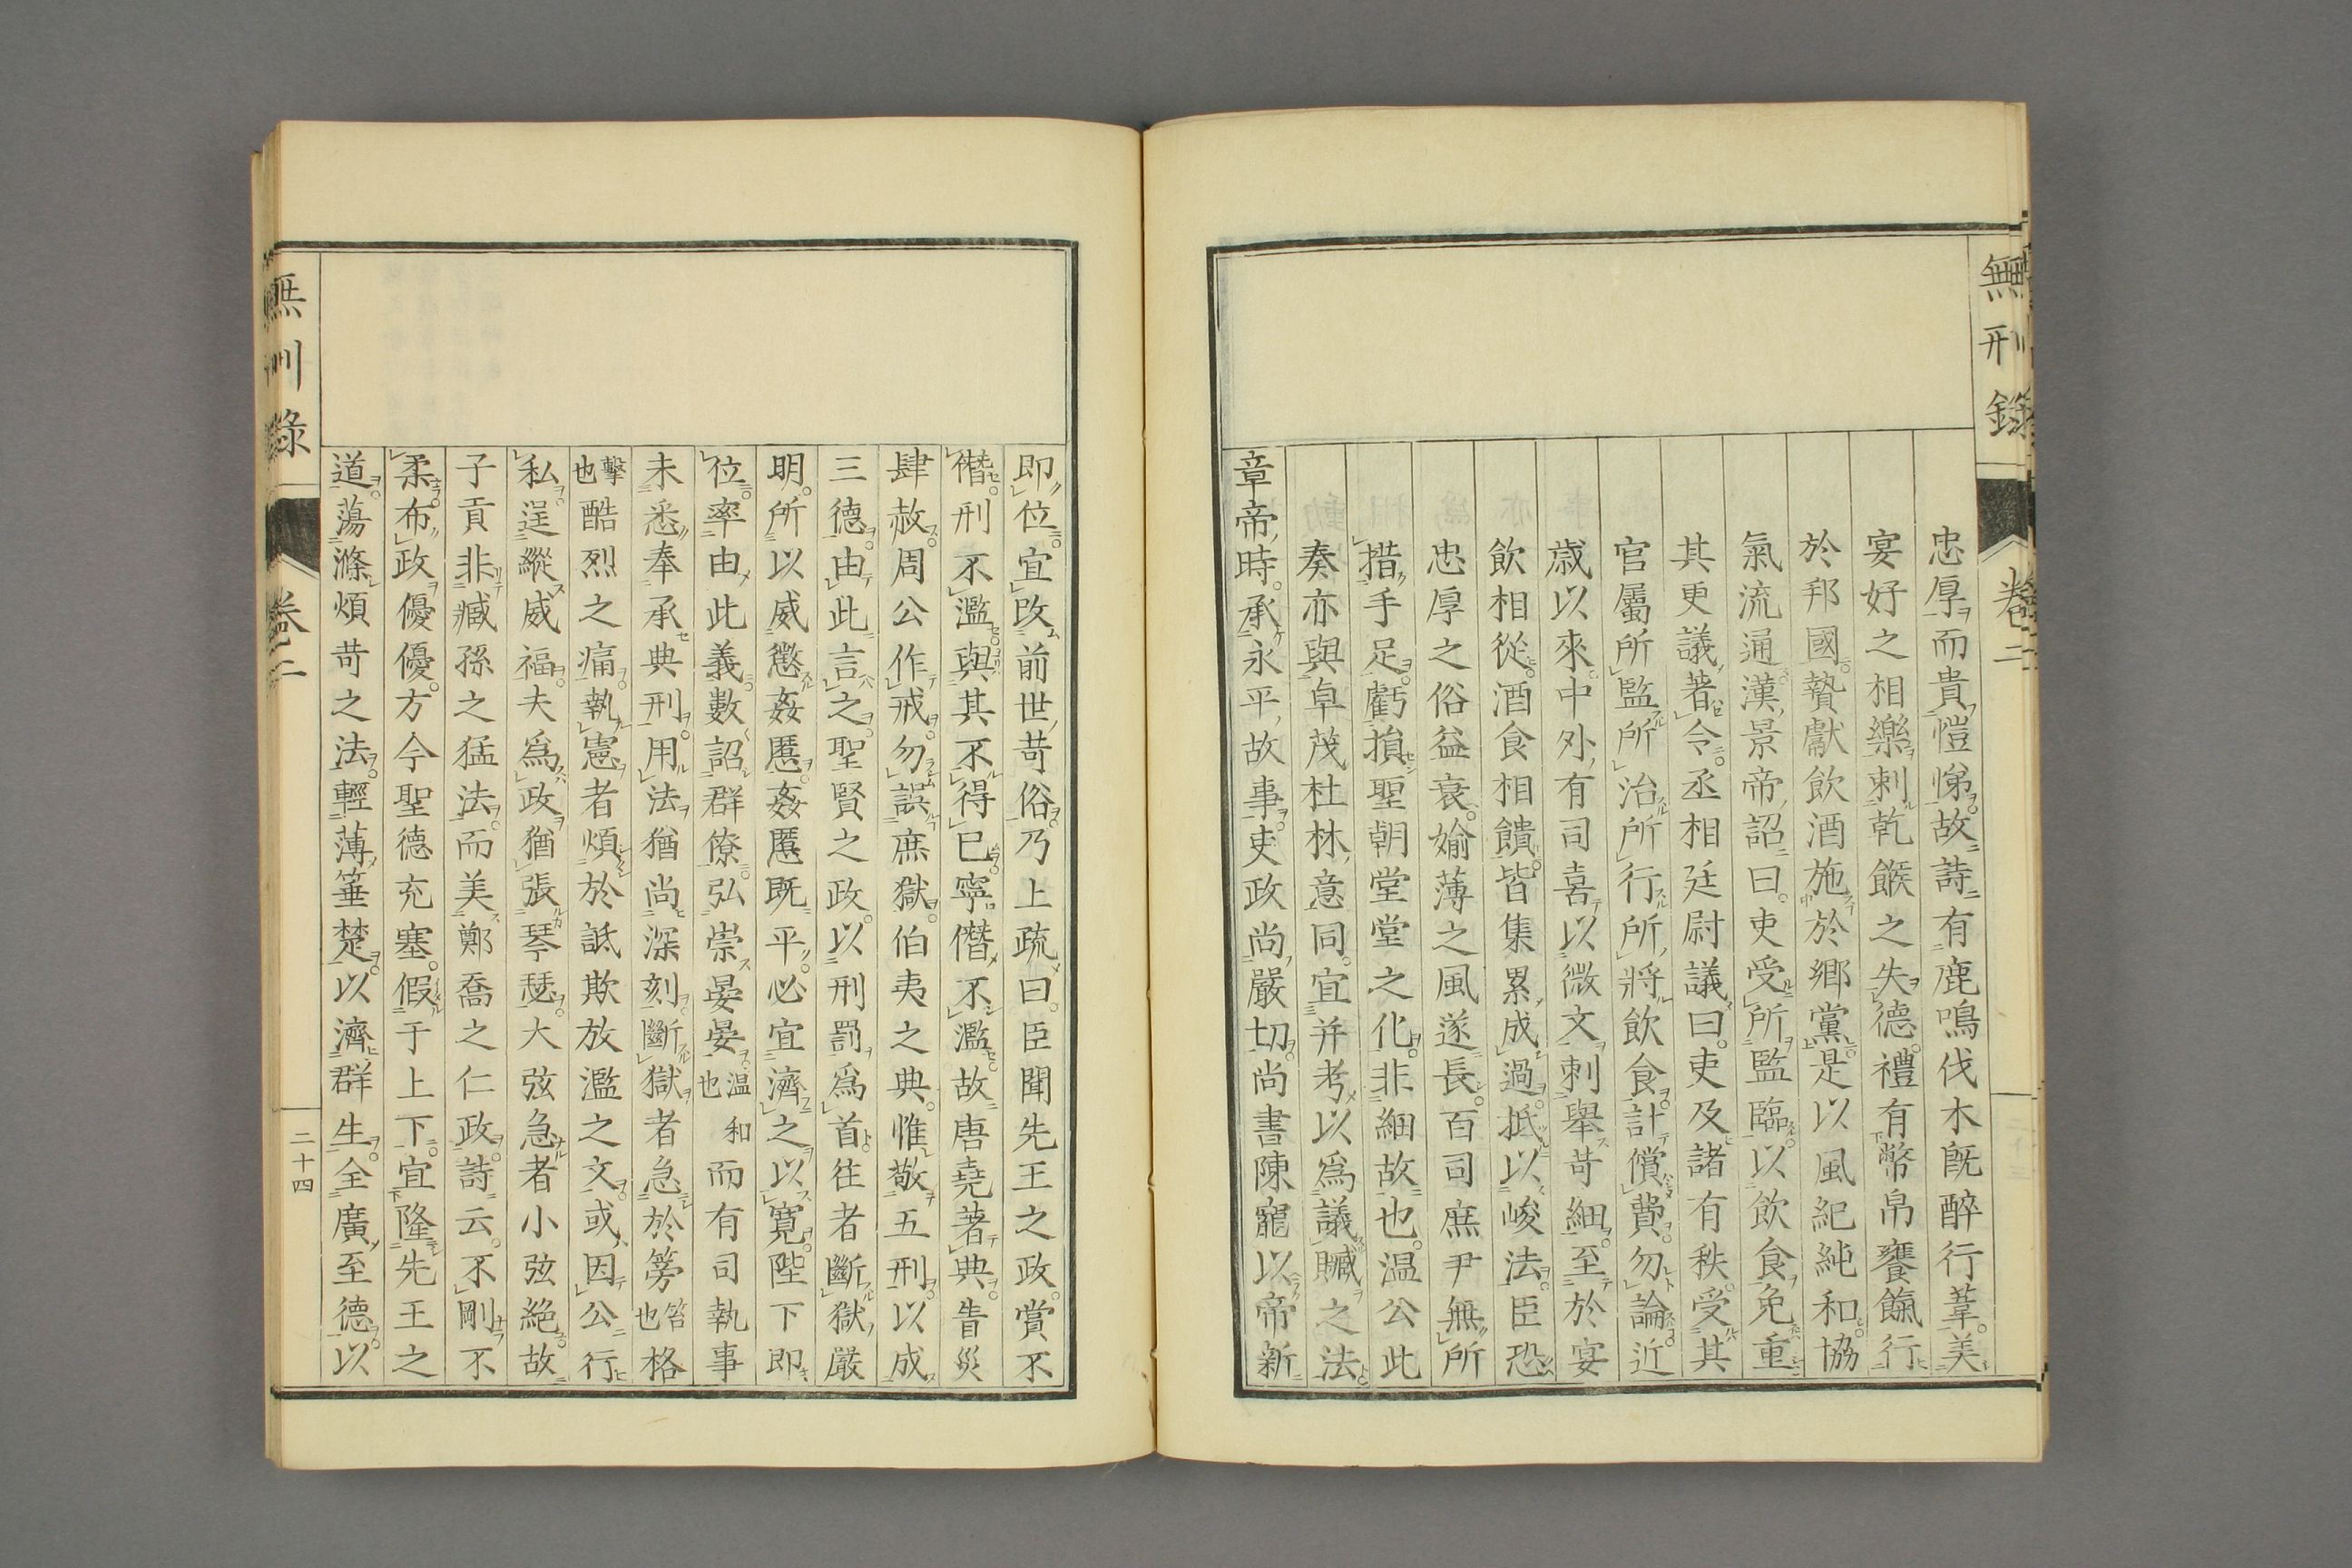 無刑錄
卷二
忠厚而貴愷悌故詩有鹿鳴伐木既醉行葦美
宴好之相樂刺乾餱之失德禮有幣帛饔餼行
於邦國贄獻飲酒施於鄉黨是以風紀純和協
氣流通漢景帝詔曰吏受所監臨以飲食免重
其更議著令丞相廷尉議曰吏及諸有秩受其
官屬所監所治所行所將飲食計償費勿論近
歲以來中外有司喜以微文刺舉苛細至於宴
飲相從酒食相饋皆集累成過抵以峻法臣恐
忠厚之俗益衰媮薄之風遂長百司庶尹無所
措手足虧損聖朝堂堂之化非細故也温公此
奏亦與卓茂杜林意同宜并考以爲議贓之法
章帝時承永平故事吏政尚嚴切尚書陳寵以帝新
即位宜改前世苛俗乃上疏曰臣聞先王之政賞不
僭刑不濫與其不得已寧僭不濫故唐堯著典眚災
肆赦周公作戒勿誤庶獄伯夷之典惟敬五刑以成
三德由此言之聖賢之政以刑罰爲首往者斷獄嚴
明所以威懲姦慝姦慝既平必宜濟之以寬陛下即
位率由此義數詔群僚弘崇晏晏温和也而有司執事
未悉奉承典刑用法猶尚深刻斷獄者急於篣笞也格
擊也酷烈之痛執憲者煩於詆欺放濫之文或因公行
私逞縱威福夫爲政猶張琴瑟大弦急者小弦絕故
子貢非臧孫之猛法而美鄭喬之仁政詩云不剛不
柔布政優優方今聖德充塞假于上下宜隆先王之
道蕩滌煩苛之法輕薄箠楚以濟群生全廣至德以
無刑錄
卷二
二十四